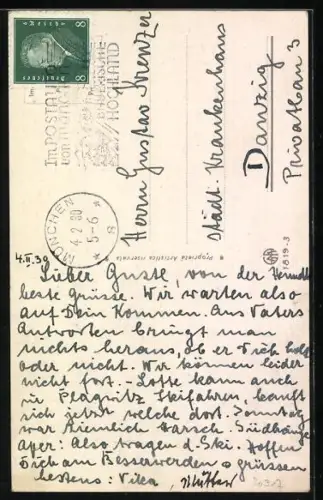 8 Deutsches Reich 8
Im POSTAUTO
VON MÜNCHEN
BAYERISCHE
HOCHLAND
MÜNCHEN
4.2.30
5-6
8
Herrn Gustav Krenzer
Städt. Krankenhaus
Danzig
Privatbau 3
Proprietà Artistica riservata
1819-3
4.II.30
Lieber Gustl, von der
beste Grüsse. Wir warten also
auf Dein Kommen. Aus Vaters
Antworten bringt man
nichts heraus, ob er Dich holt
oder nicht. Wir können leider
nicht fort. Lotte kann auch
zu Skifahren, kauft
sich jetzt welche dort. Sonntag
war ziemlich Harsch. Südhänge
aper: Also tragen d. Ski. Hoffen
Dich am Besserwerden & grüssen
bestens: Mutter